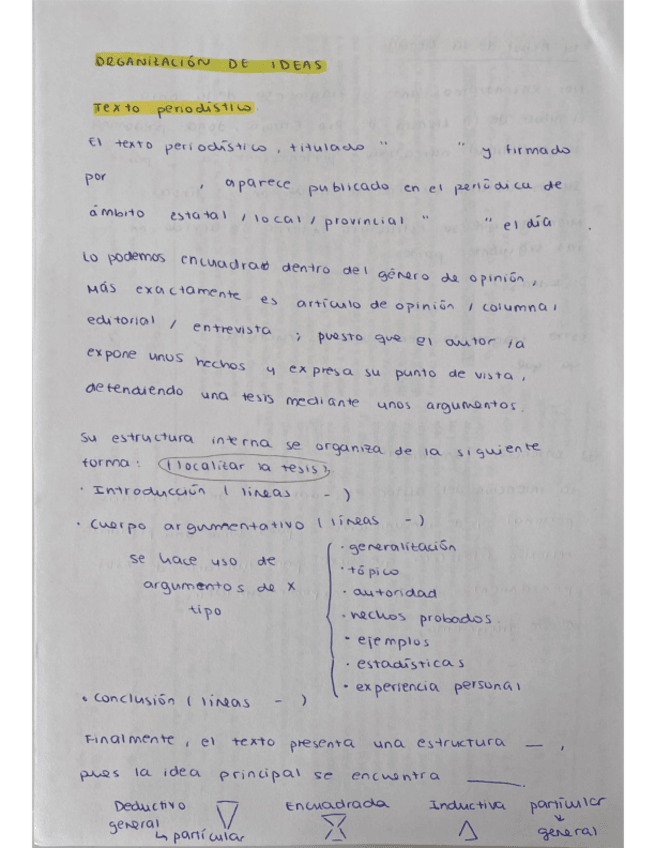 ORGANIZACIÓN DE IDEAS
Texto periodístico
El texto periodístico, titulado "          " y firmado
por          , aparece publicado en el periódica de
ámbito estatal / local / provincial "          " el día          .
Lo podemos encuadrar dentro del género de opinión,
más exactamente es artículo de opinión / columna /
editorial / entrevista ; puesto que el autor /a
expone unos hechos y expresa su punto de vista,
defendiendo una tesis mediante unos argumentos.
Su estructura interna se organiza de la siguiente
forma: (localizar la tesis).
· Introducción ( líneas   -   )
· Cuerpo argumentativo ( líneas   -   )
se hace uso de
argumentos de X
tipo
· generalización
· tópico
· autoridad
· hechos probados.
· ejemplos
· estadísticas
· experiencia personal
· Conclusión ( líneas   -   )
Finalmente, el texto presenta una estructura __ ,
pues la idea principal se encuentra ____.
Deductivo
general
↳ particular
Encuadrada
Inductiva
particular
↓
general